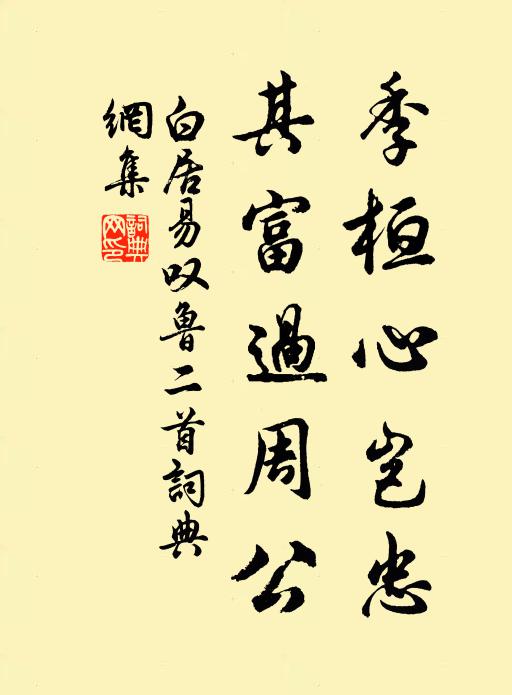 季桓心岂忠
其富過周公
白居易叹鲁二首詞典
網集
詞典
网印